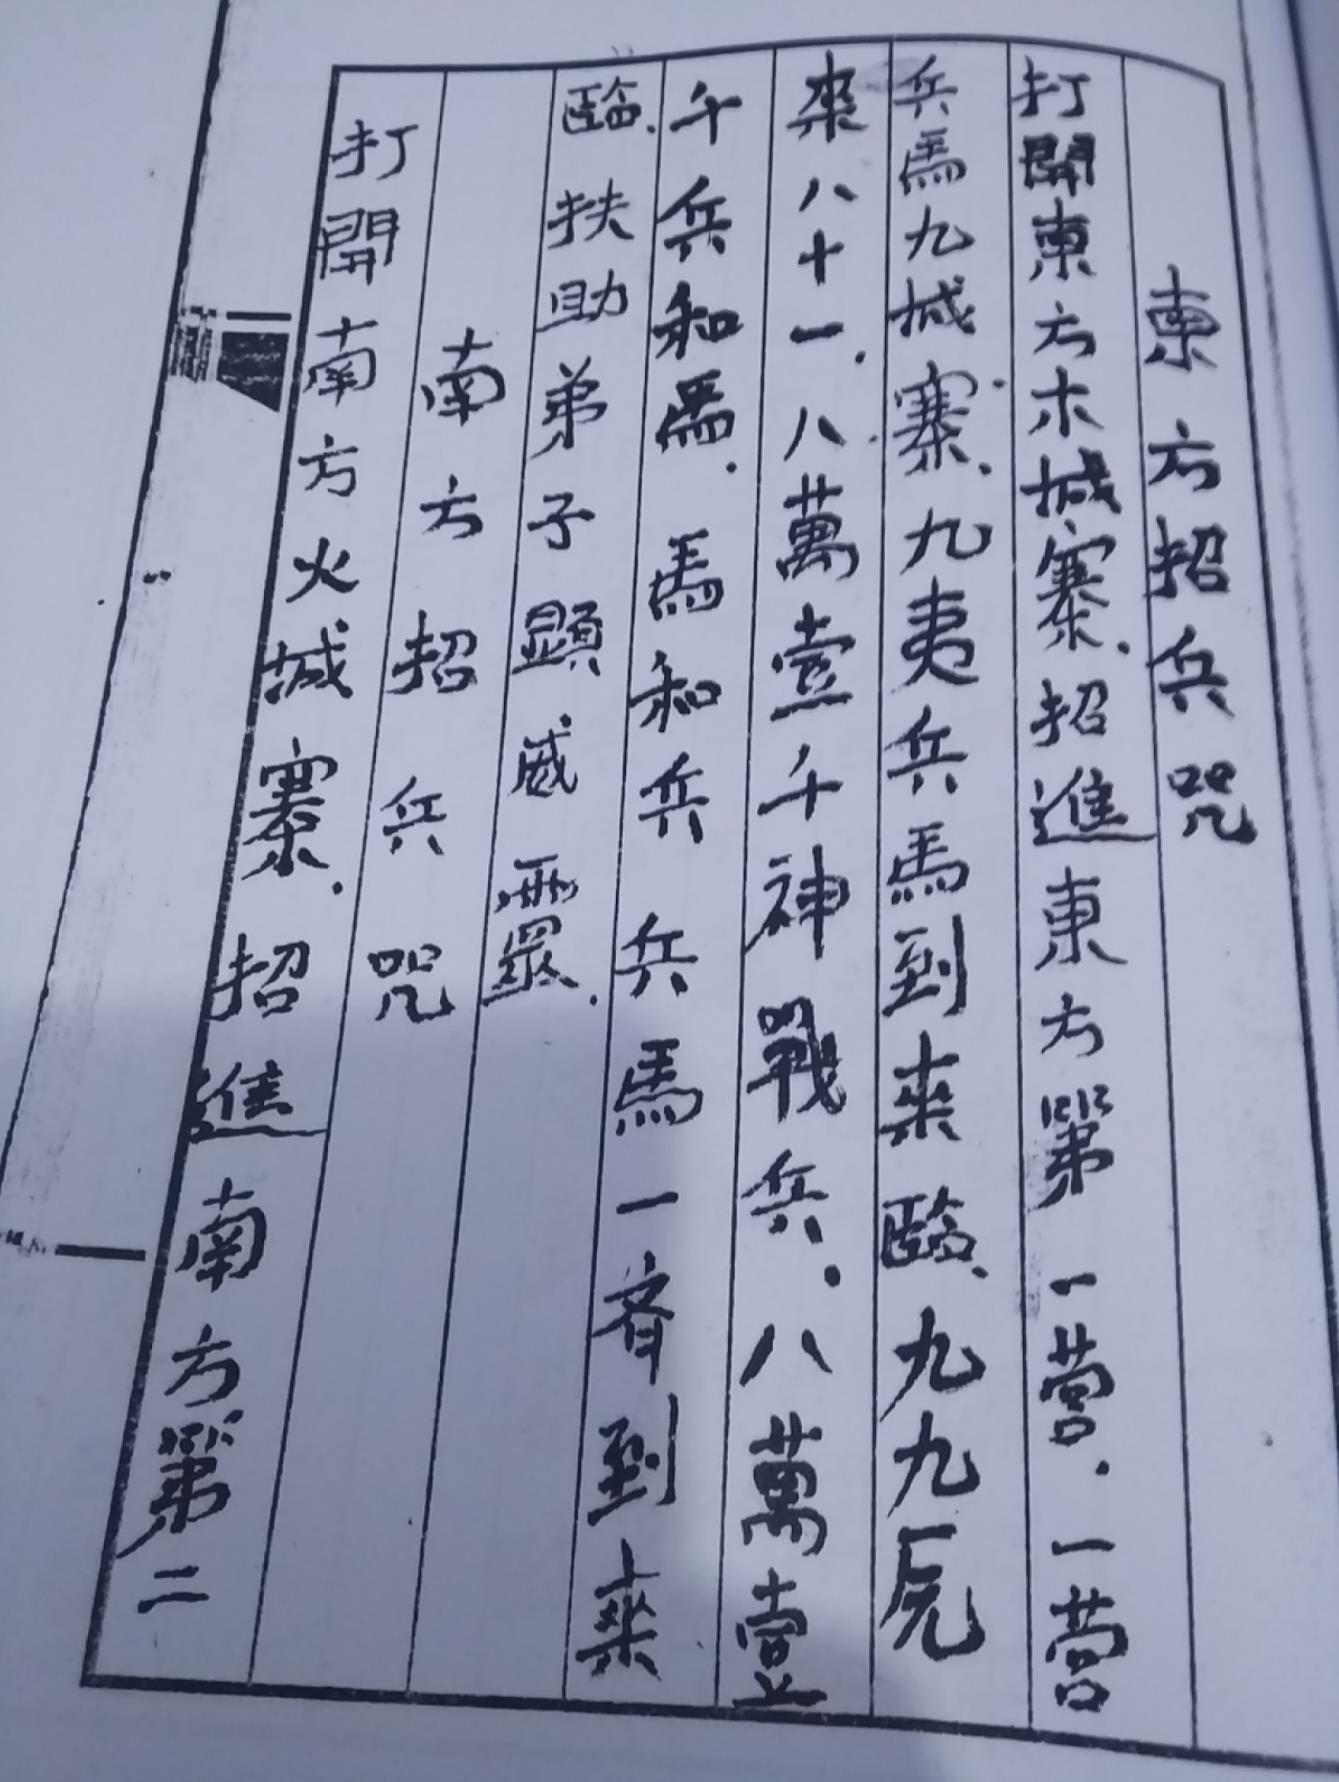 東方招兵咒
打開東方木城寨.招進東方第一营.一营
兵馬九城寨.九夷兵馬到来臨.九九原
来八十一.八萬壹千神戰兵.八萬壹
千兵和馬.馬和兵兵馬一齊到来
臨.扶助弟子顕威靈.
南方招兵咒
打開南方火城寨.招進南方第二